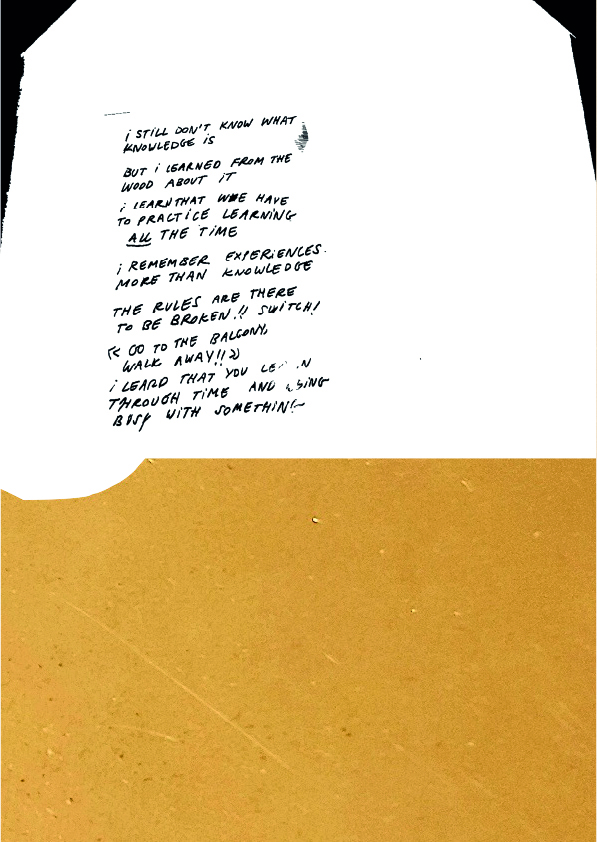 i STILL DON'T KNOW WHAT
KNOWLEDGE iS
BUT i LEARNED FROM THE
WOOD ABOUT iT
i LEARN THAT WE HAVE
TO PRACTiCE LEARNING
ALL THE TiME
i REMEMBER EXPERiENCES.
MORE THAN KNOWLEDGE
THE RULES ARE THERE
TO BE BROKEN!! SWiTCH!
<< GO TO THE BALCONY,
WALK AWAY!! >>
i LEARD THAT YOU
THROUGH TiME AND
BUSY WiTH SOMETHiNG